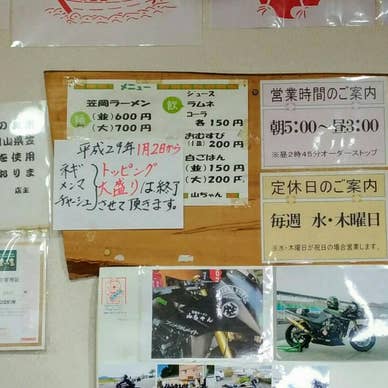 メニュー
笠岡ラーメン
(並)600円
(大)700円
飲
ジュース
ラムネ
コーラ
各150円
おむすび
200円
白ごはん
(並)150円
(大)200円
山ちゃん
平成29年1月2日から
ネギ
メンマ
チャーシュー
トッピング
大盛りは終了
させて頂きます。
営業時間のご案内
朝5:00〜昼3:00
※昼2時45分オーダーストップ
定休日のご案内
毎週 水・木曜日
※水・木曜日が祝日の場合営業します。
を使用
店主
山ちゃん